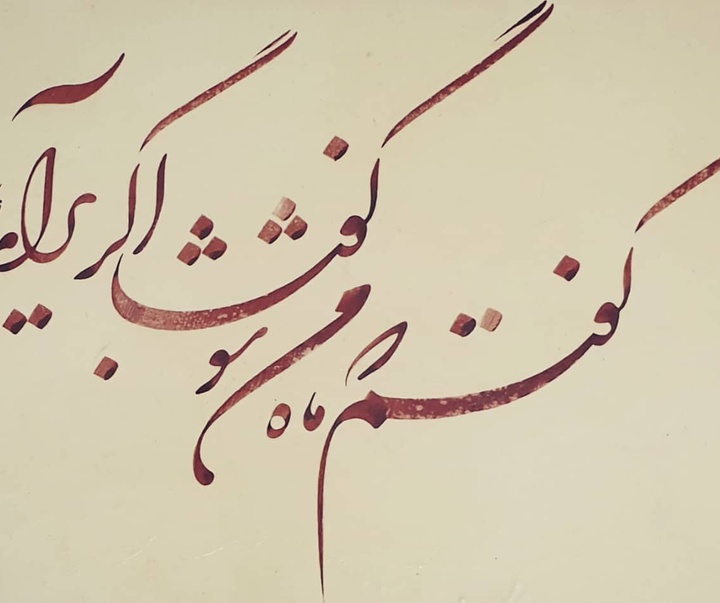 گفتم ماه من شو گفتا اگر برآید